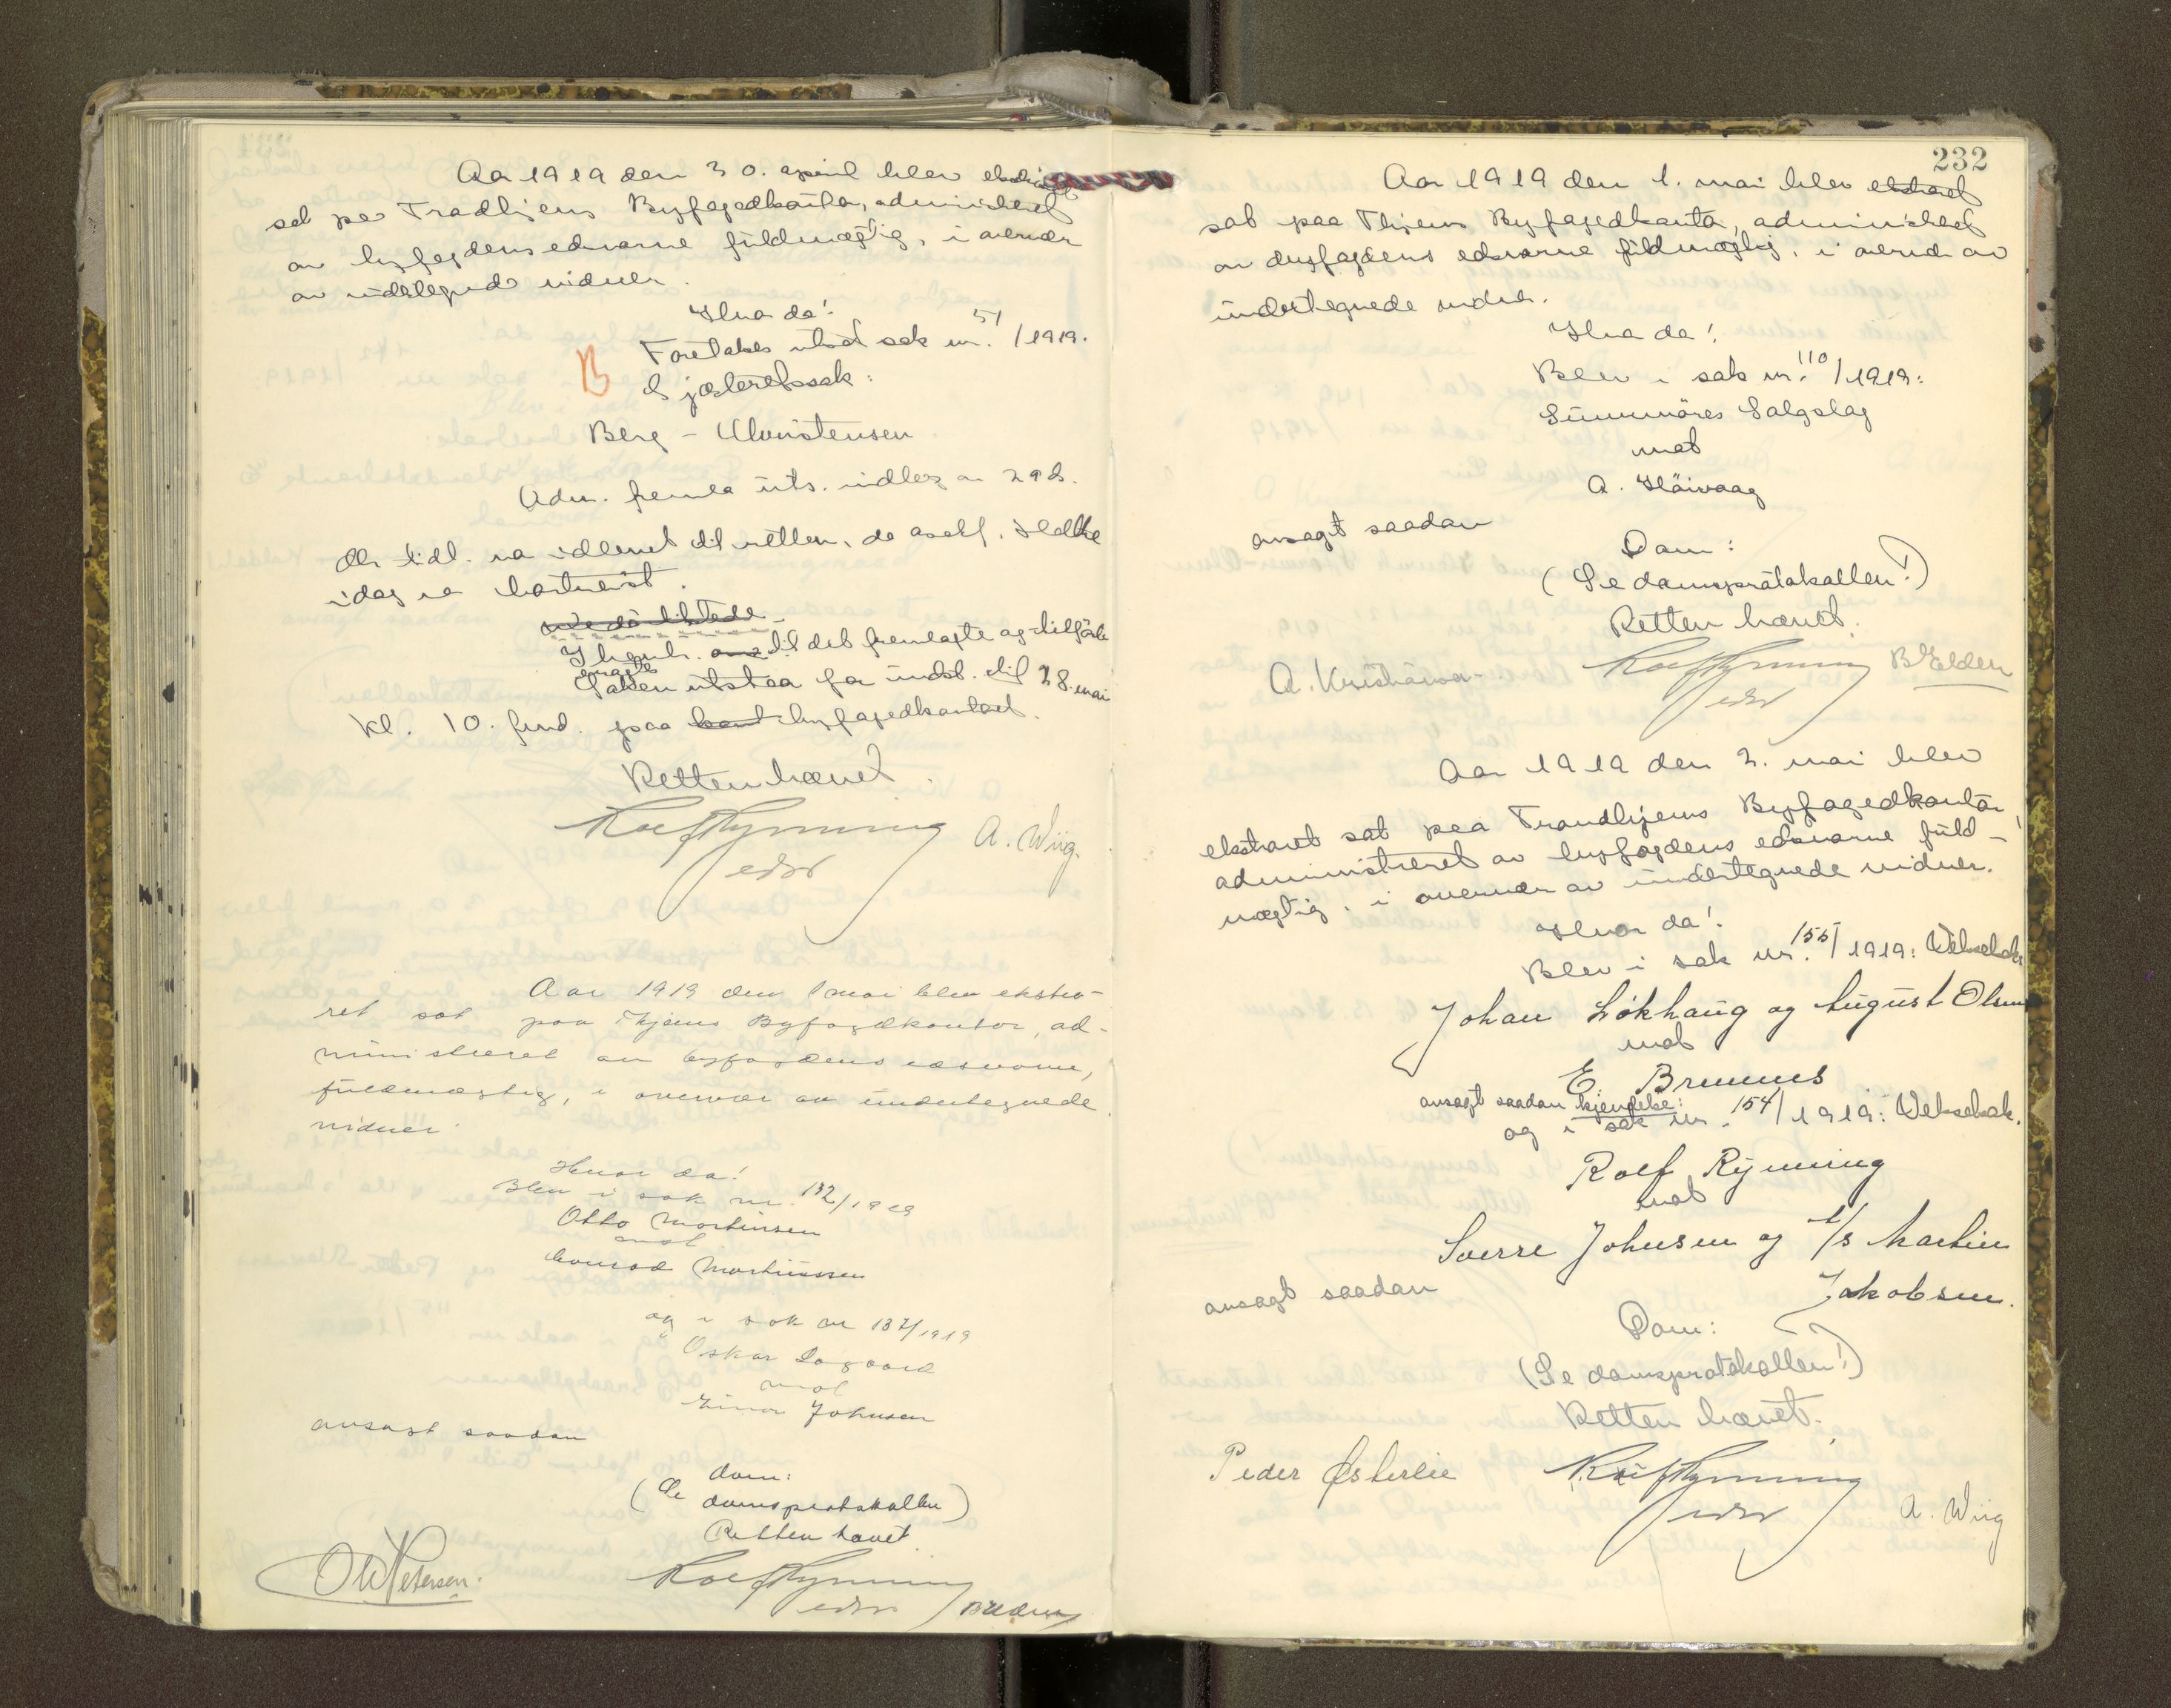 Aar 1919 den 30. april blev ekstraret
sat paa Trondhjems Byfogedkontor, administreret
av byfogdens edsvorne fuldmægtig, i overvær
av undertegnede vidner.
Hvor da!
Foretokes utsat sak nr. 51/1919.
B
Gjesteretssak:
Berg – Christensen
Adm. fremla uts. indlæg av 29 ds.
idag er bortreist.
til det fremlagte og tilførte
Saken utstaa for indst. til 28. mai
kl. 10. form. paa byfogedkontoret.
Retten hævet.
Rolf Rymning
edsv
A. Wiig.
Aar 1919 den 1 mai blev ekstra-
ret sat paa Thjems Byfogedkontor, ad-
ministreret av byfogdens edsvorne,
fuldmægtig, i overvær av undertegnede
vidner.
Hvor da!
Blev i sak nr. 132/1919
Otto Mortinsen
mot
Konrad Martinssen
og i sak nr 137/1919
Oskar Dagaard
mot
Einar Johnsen
avsagt saadan
dom:
(Se domsprotokollen)
Retten hævet.
O W Petersen.
Rolf Rymning
edsv
B Elden
232
Aar 1919 den 1. mai blev ekstraret
sat paa Thjems Byfogedkontor, administreret
av byfogdens edsvorne fuldmægtig, i overvær av
undertegnede vidner.
Hvor da!
Blev i sak nr. 110/1919:
Sunnmöres Salgslag
mot
A. Håivaag
avsagt saadan
Dom:
(Se domsprotokollen!)
Retten hævet.
A. Kristiansen
Rolf Rymning
edsv
B Elden
Aar 1919 den 2. mai blev
ekstraret sat paa Trondhjems Byfogedkontor,
administreret av byfogdens edsvorne fuld-
mægtig, i overvær av undertegnede vidner.
Hvor da!
Blev i sak nr. 155/1919: Vekselsak
Johan Løkhaug og August Olsen
mot
E. Bremnes
avsagt saadan kjendelse:
og i sak nr. 154/1919: Vekselsak.
Rolf Rymning
mot
Sverre Johnsen og A/s Martin
Jakobsen.
avsagt saadan
Dom:
(Se domsprotokollen!)
Retten hævet.
Peder Østerlie
Rolf Rymning
edsv
A. Wiig